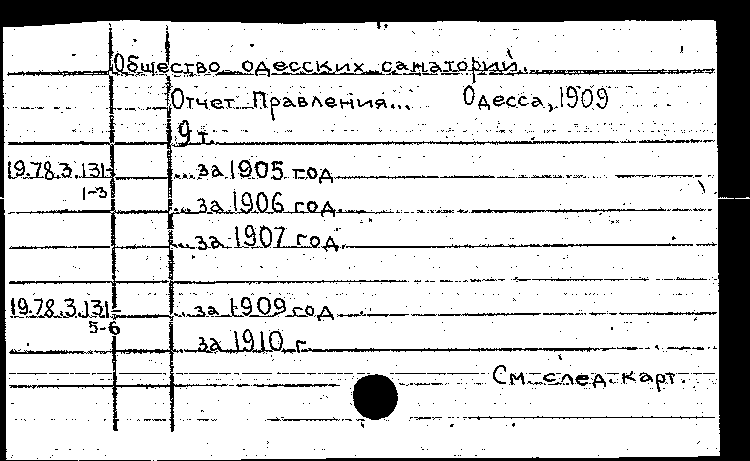 Общество одесских санаторий.
Отчет Правления... Одесса, 1909
9 т.
19.78.3.131- ...за 1905 год
1-3
...за 1906 год.
...за 1907 год.
19.78.3.131- ...за 1909 год
5-6
за 1910 г.
См. след. карт.